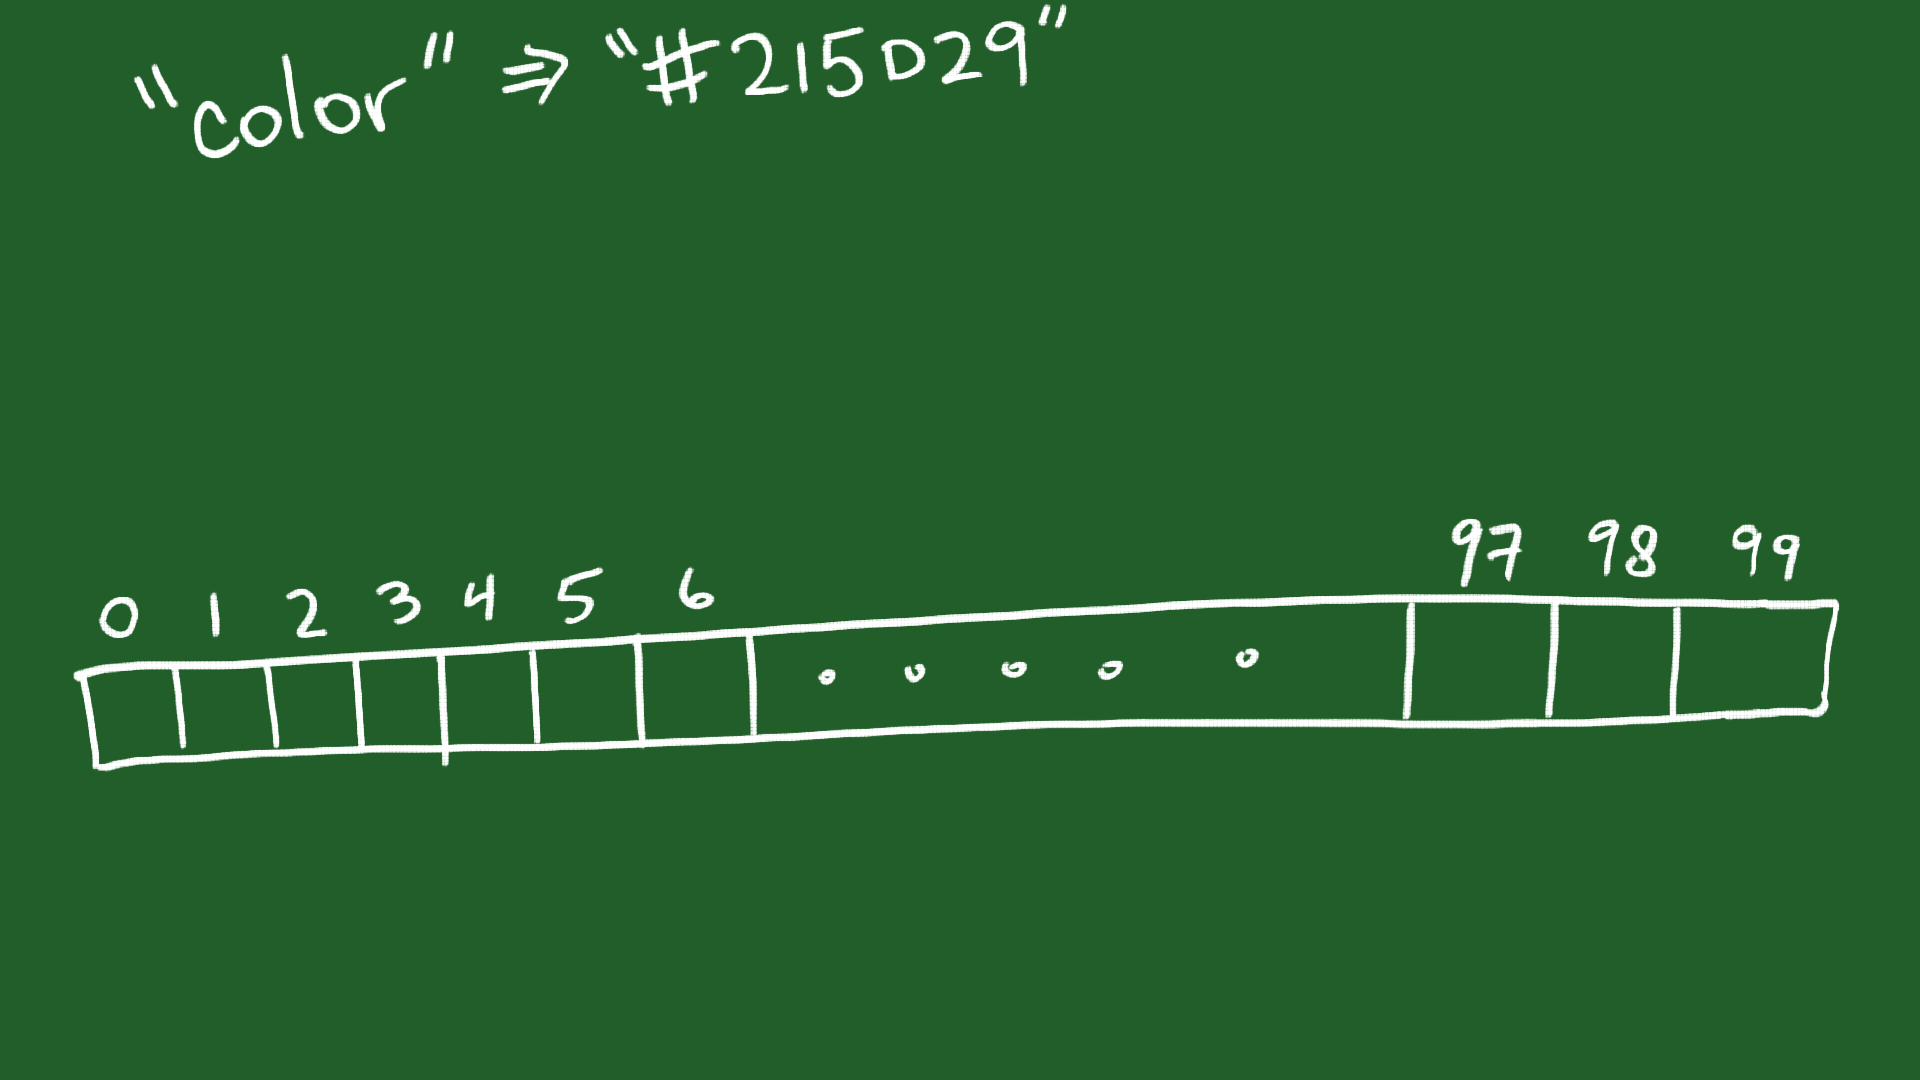 "color" ⇒ "#215D29"
0 1 2 3 4 5 6 97 98 99